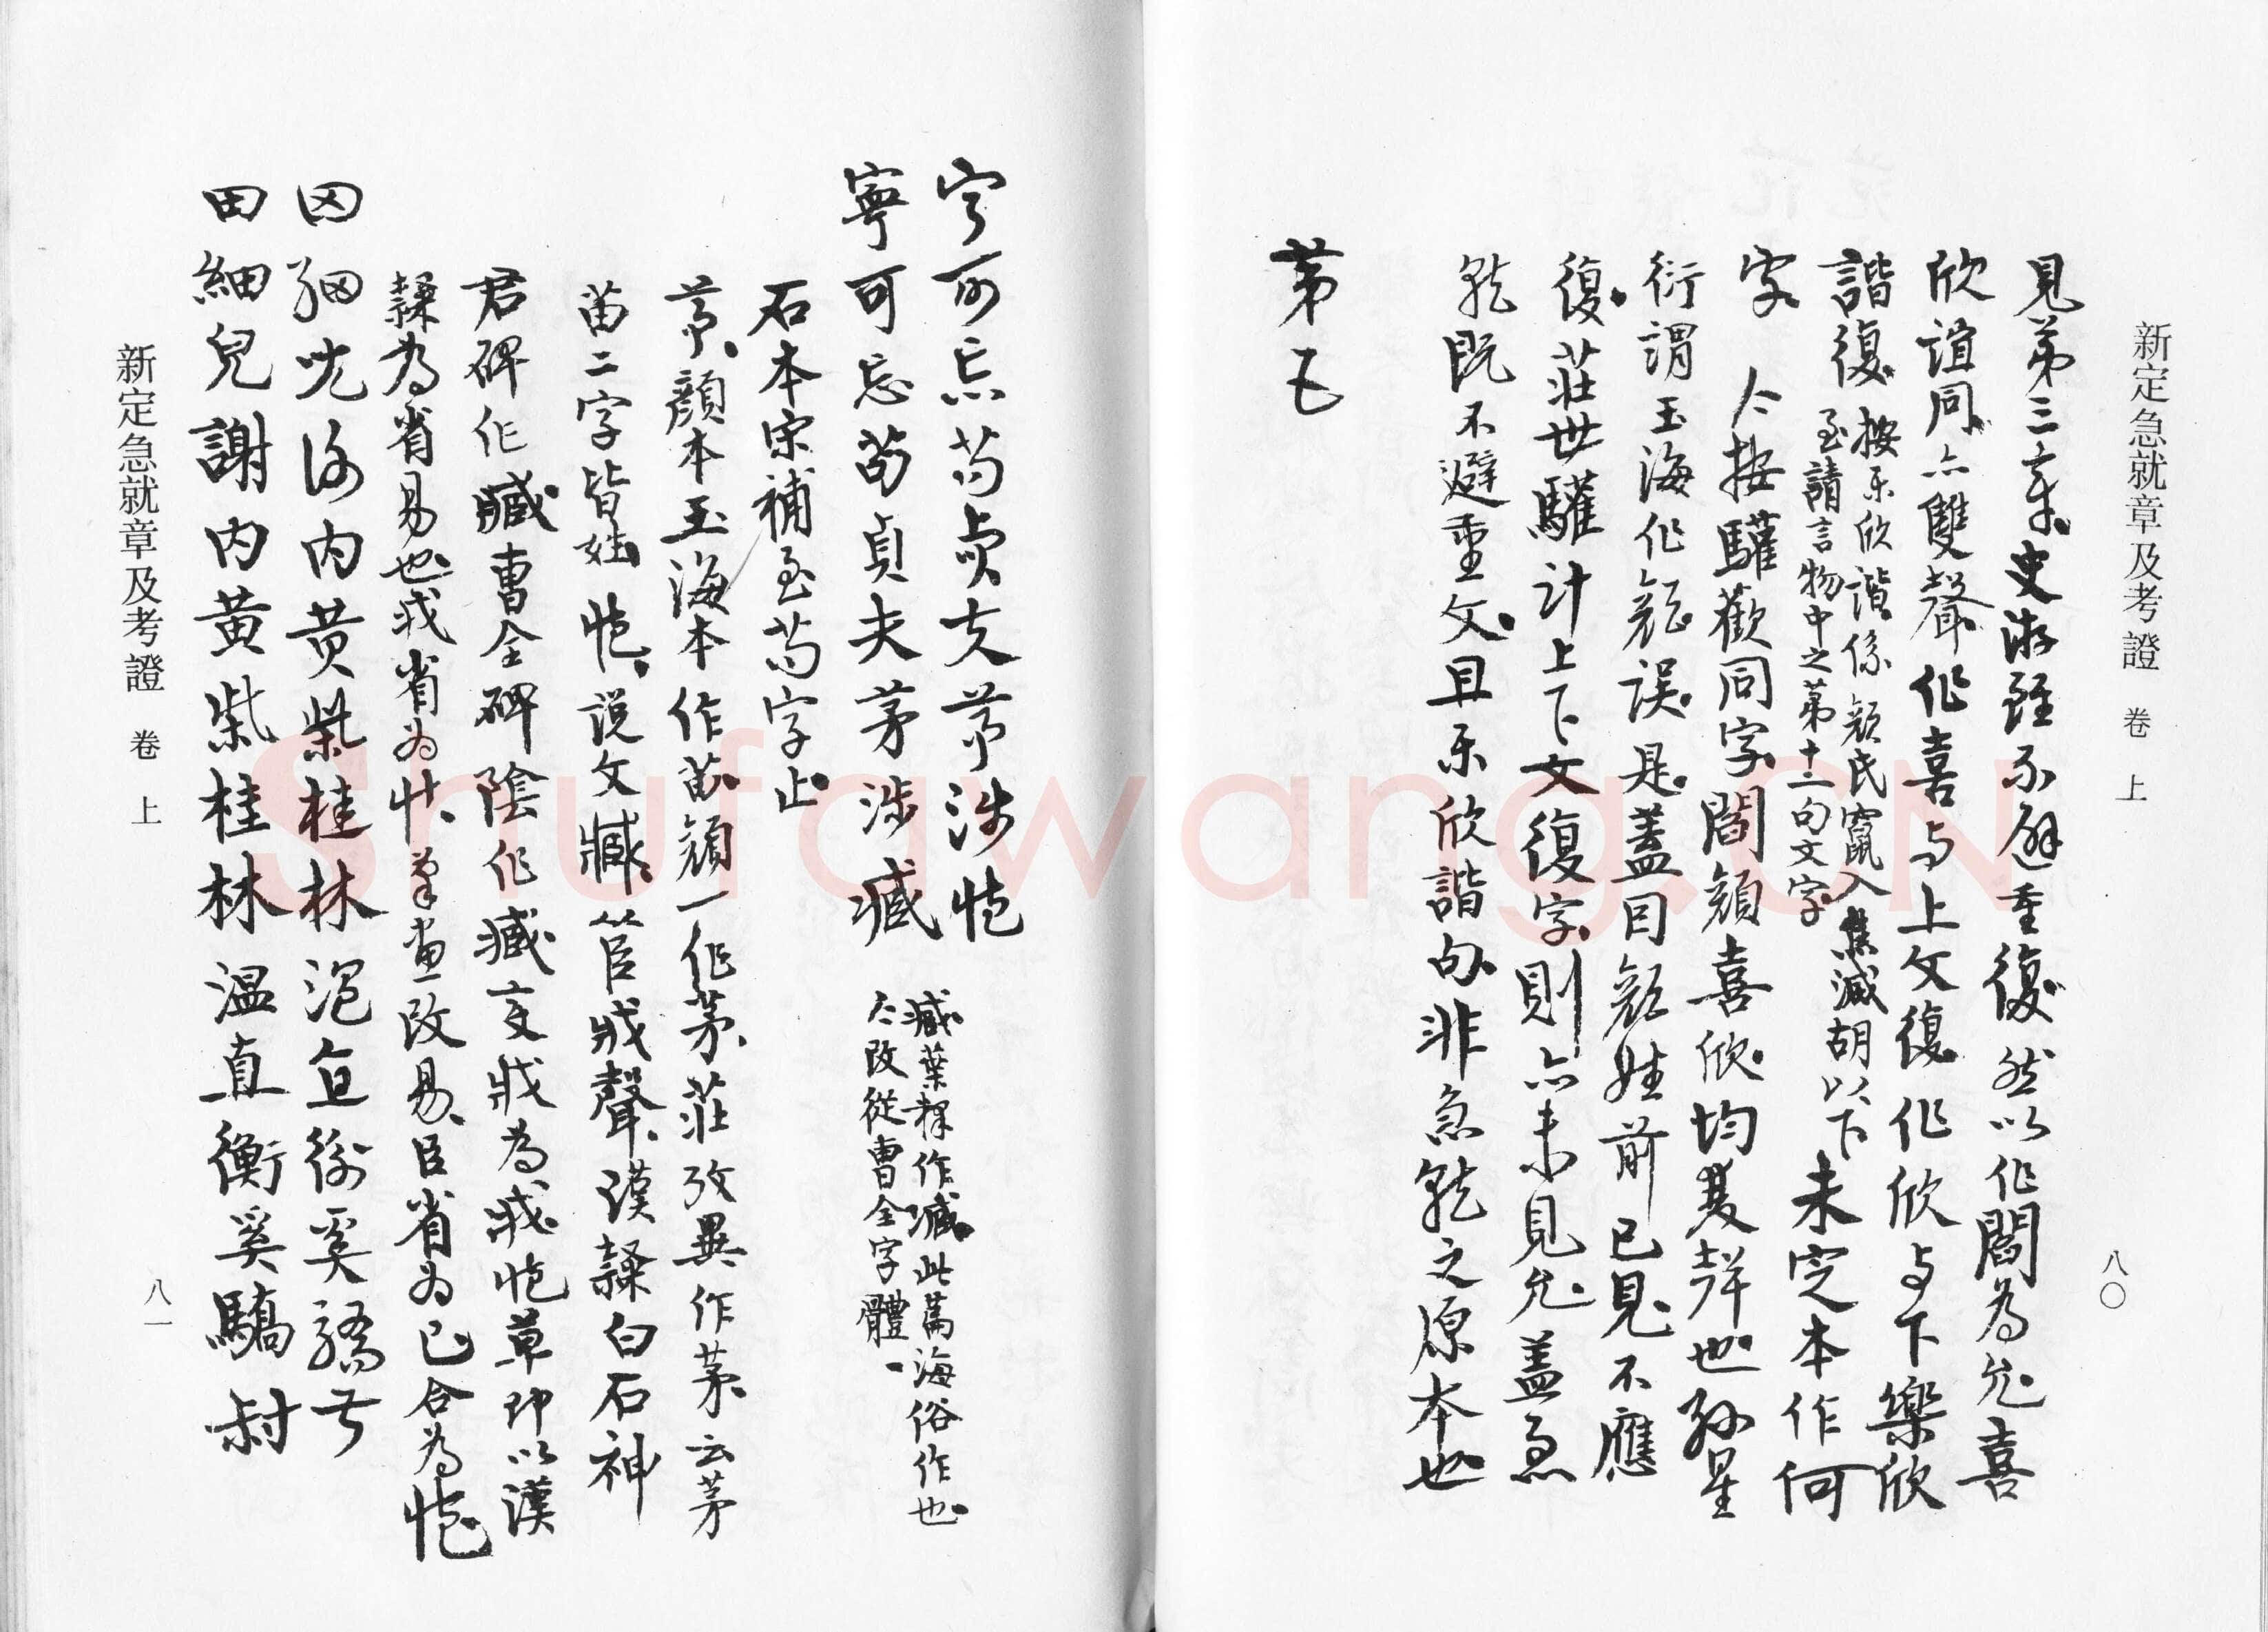 新定急就章及考證 卷上
八〇
見第三章。史游雖不避重復然以作閻為允喜
欣誼同。亦雙聲作喜与上文復作欣与下樂欣
諧復。按樂欣諧係顏氏竄入焦滅胡以下
至請言物中之第十二句文字。
未定本作何
字。今按驩歡同字。閻顏喜欣。均雙聲也。孫星
衍謂玉海作顏誤。是。蓋因顏姓前已見。不應
復。莊世驩計上下文復字。則亦未見允。蓋急
就既不避重文。且樂欣諧句。非急就之原本也
第五
寧可忘苟貞夫茅涉臧
寧可忘苟貞夫茅涉臧
臧葉釋作減。此萬海俗作也。
今改從曹全字體。
石本宋補至苟字止。
茅。顏本玉海本作苗。顏一作茅。莊攷異作茅。云茅
苗二字皆姓。臧。說文臧。從臣戕聲。漢隸白石神
君碑作臧。曹全碑陰作臧。变戕為戚。草即以漢
隸為省易也。戕省為忄。筆畫改易。臣省為巳。合為
田細兒謝內黃柴桂林溫直衡奚驕叔
田細兒謝內黃柴桂林溫直衡奚驕尌
新定急就章及考證 卷上
八一
Shufawang.CN